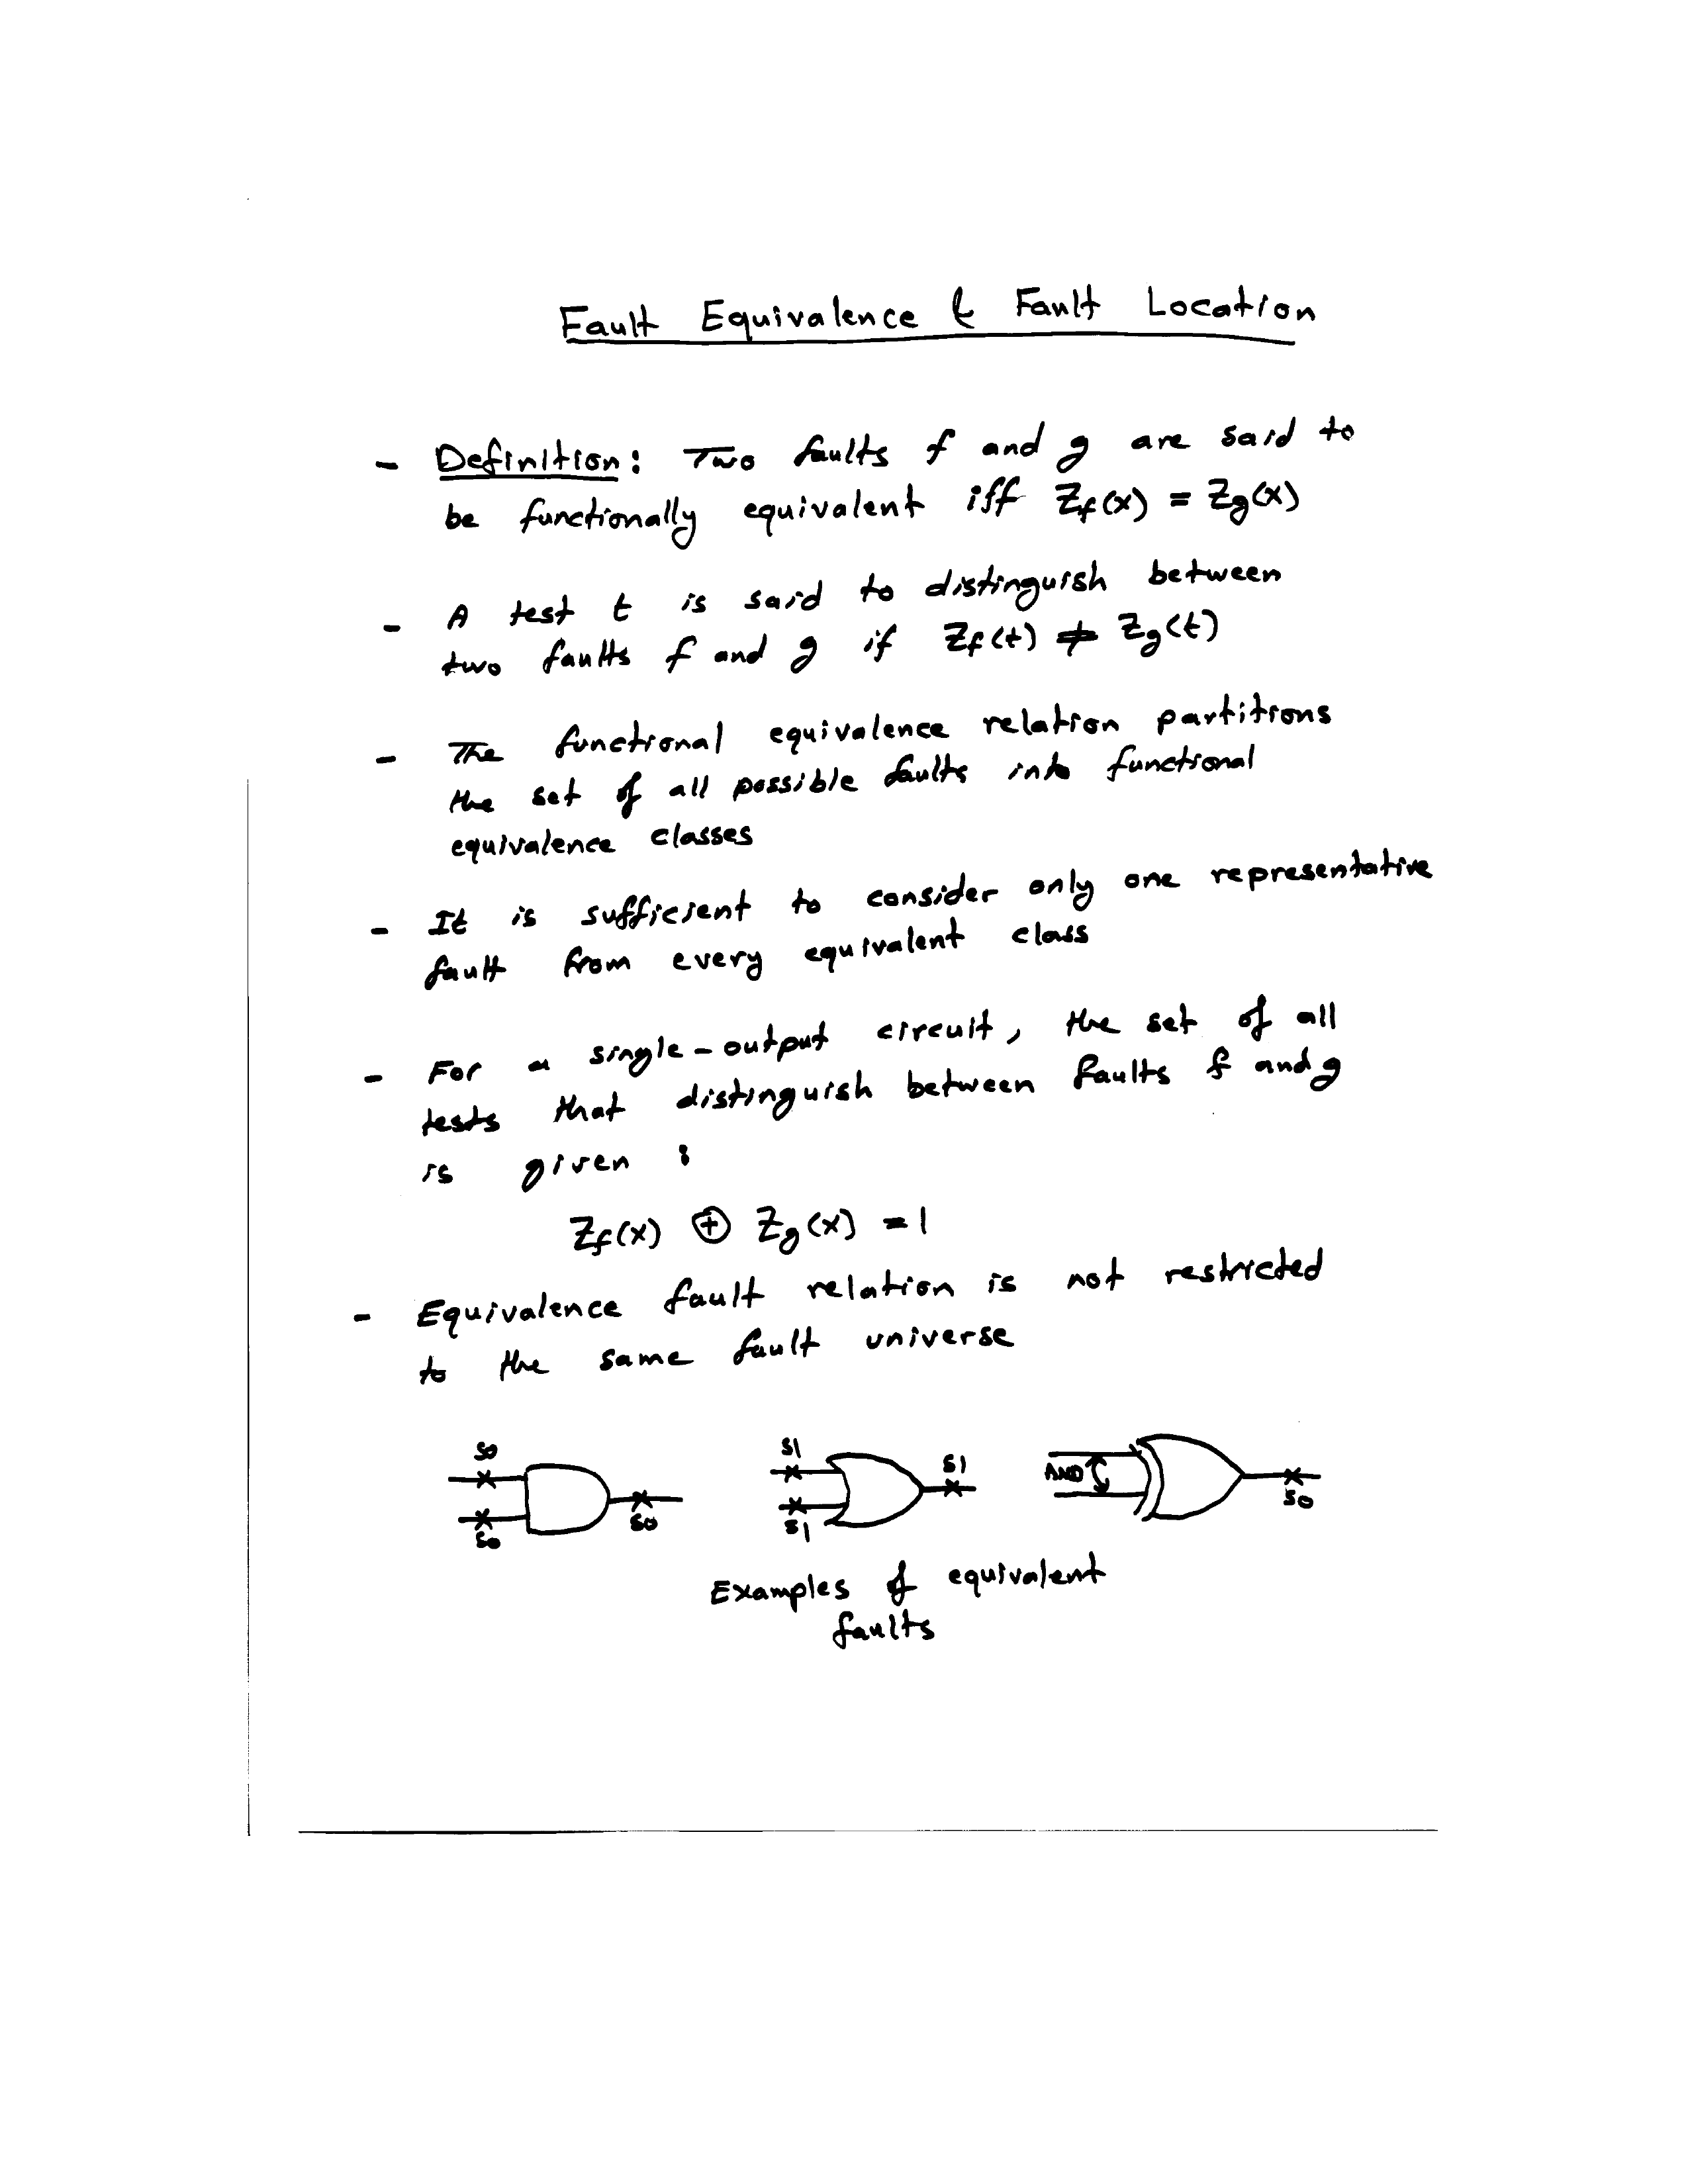 Fault Equivalence & Fault Location
- Definition: Two faults f and g are said to
be functionally equivalent iff Zf(x) = Zg(x)
- A test t is said to distinguish between
two faults f and g if Zf(t) ≠ Zg(t)
- The functional equivalence relation partitions
the set of all possible faults into functional
equivalence classes
- It is sufficient to consider only one representative
fault from every equivalent class
- For a single-output circuit, the set of all
tests that distinguish between faults f and g
is given :
Zf(x) ⊕ Zg(x) = 1
- Equivalence fault relation is not restricted
to the same fault universe
S0
S0
S0
S1
S1
S1
AND
S0
Examples of equivalent
faults